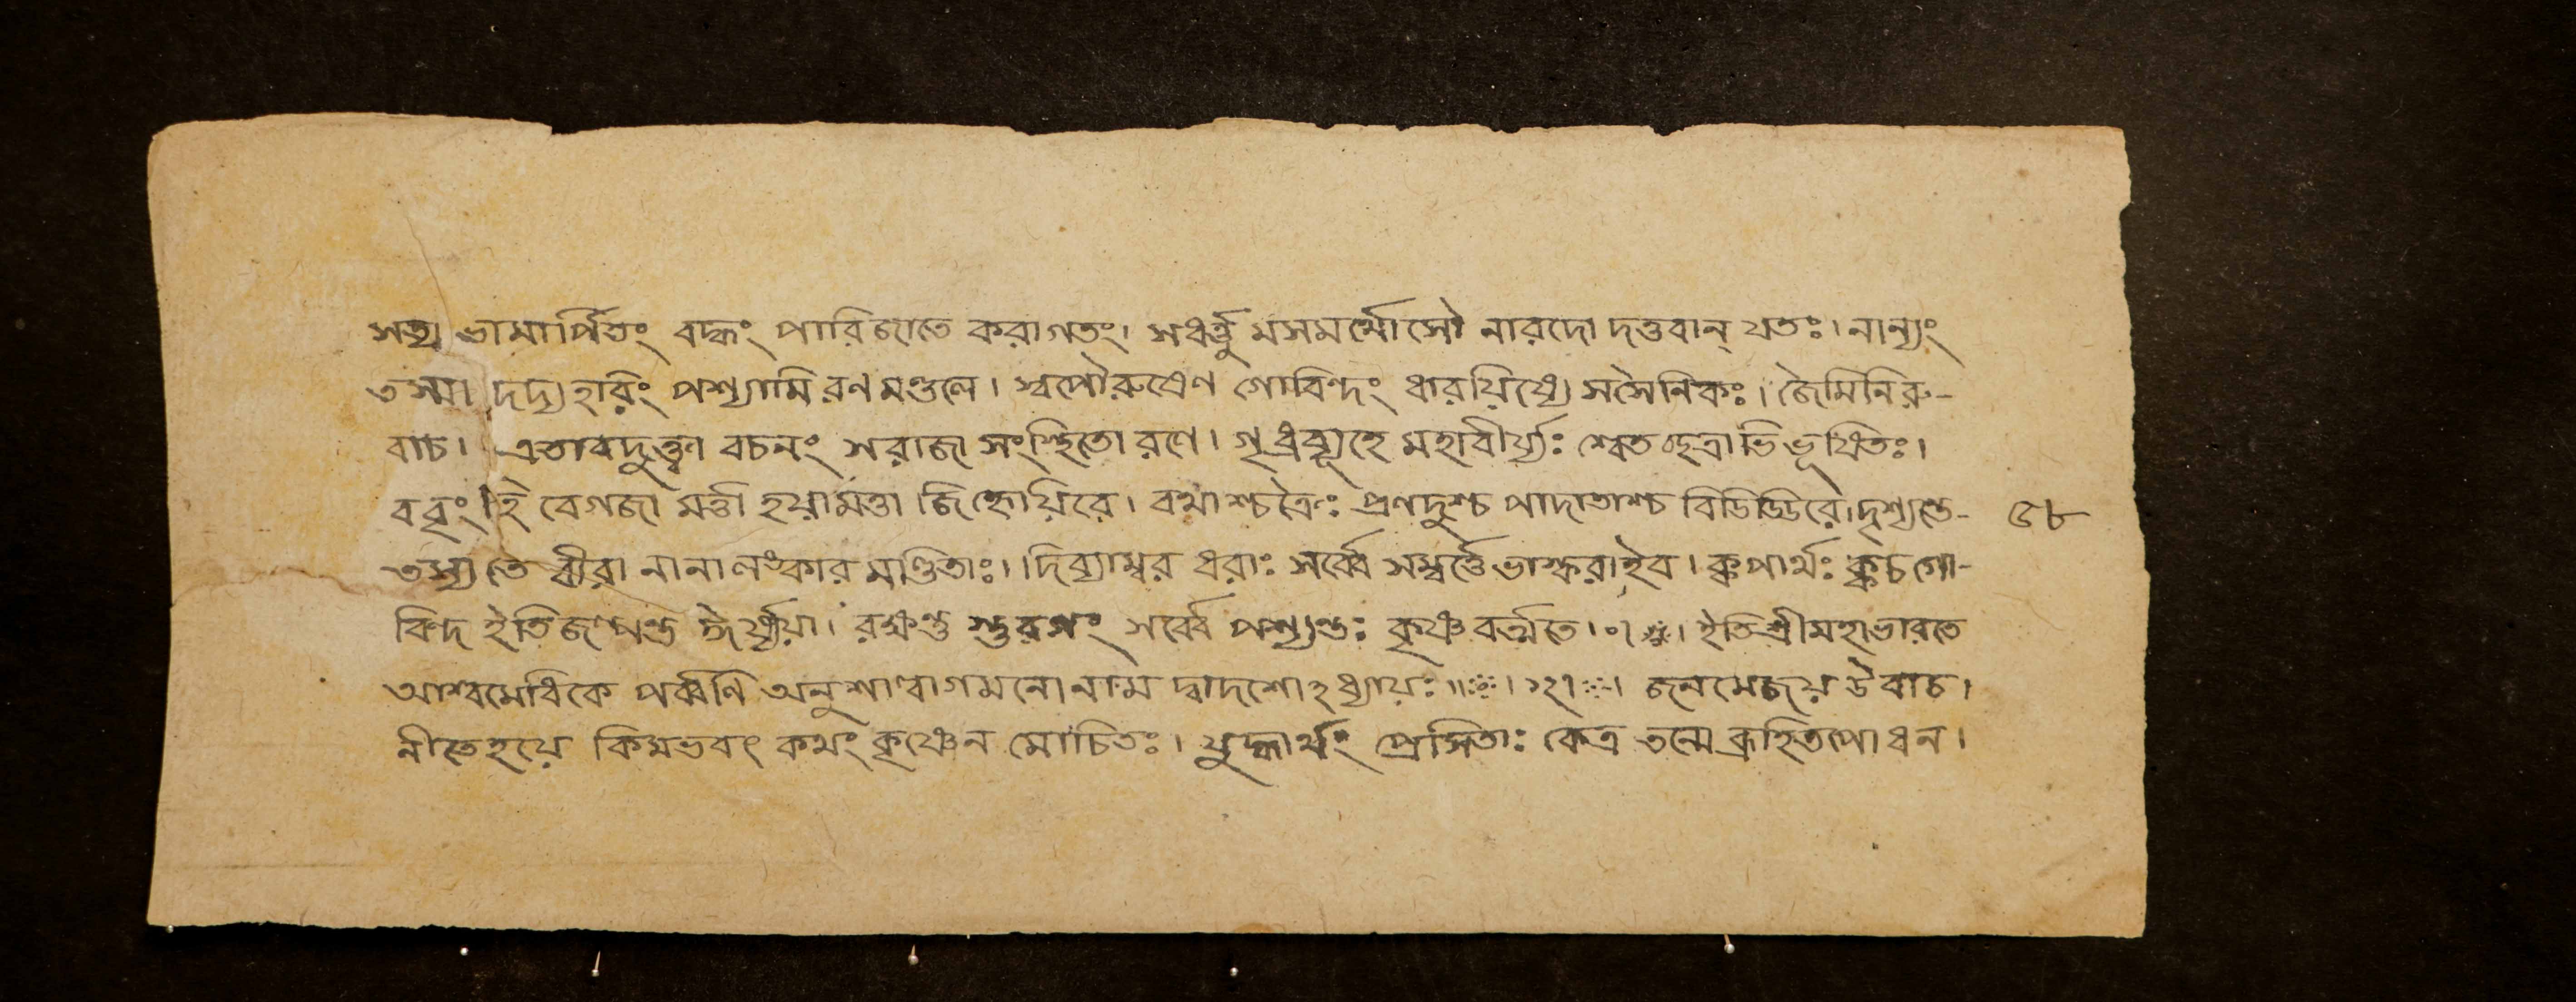 সত্য ভামার্পিতং বদ্ধং পারিজাতে করাগতং। সধর্ত্তু মসমর্থোসৌ নারদো দত্তবান্ যতঃ। নান্যং
তস্মা দদ্য হরিং পশ্যামি রণ মণ্ডলে। স্বপৌরুষেণ গোবিন্দং ধারয়িষ্যে সসৈনিকঃ। জৈমিনিরু-
বাচ। এতাবদুক্ত্বা বচনং সরাজা সংস্থিতো রণে। গৃধ্রব্যূহে মহাবীর্য্যঃ শ্বেতছত্রাভিভূষিতঃ।
গজা মর্ত্তা হয়ামত্তা জিহ্বেয়িরে। প্রণদুশ্চ পাদাতাশ্চ বিডিড্ডিরে। দৃশ্যন্তে- ৫৮
তস্য তে বীরা নানালংকার মণ্ডিতাঃ। দিব্যাম্বর ধরাঃ সর্ব্বে সম্বর্ত্তে ভাস্করাইব। ক্বপার্থঃ ক্বচগো-
বিন্দ ইতিজল্পন্ত ঈর্ষ্যয়া। রক্ষন্ত স্তুরগং সর্ব্বে পশ্যন্তঃ কৃষ্ণবর্ত্মতে। ০। ইতি শ্রীমহাভারতে
আশ্বমেধিকে পর্ব্বণি অনুশাল্বাগমনো নাম দ্বাদশোঽধ্যায়ঃ॥ । ১২। । জনমেজয় উবাচ।
নীতেহয়ে কিমভবৎ কথং কৃষ্ণেন মোচিতঃ। যুদ্ধার্থং প্রেষিতাঃ কেত্র তন্মে ব্রূহিতপোধন।